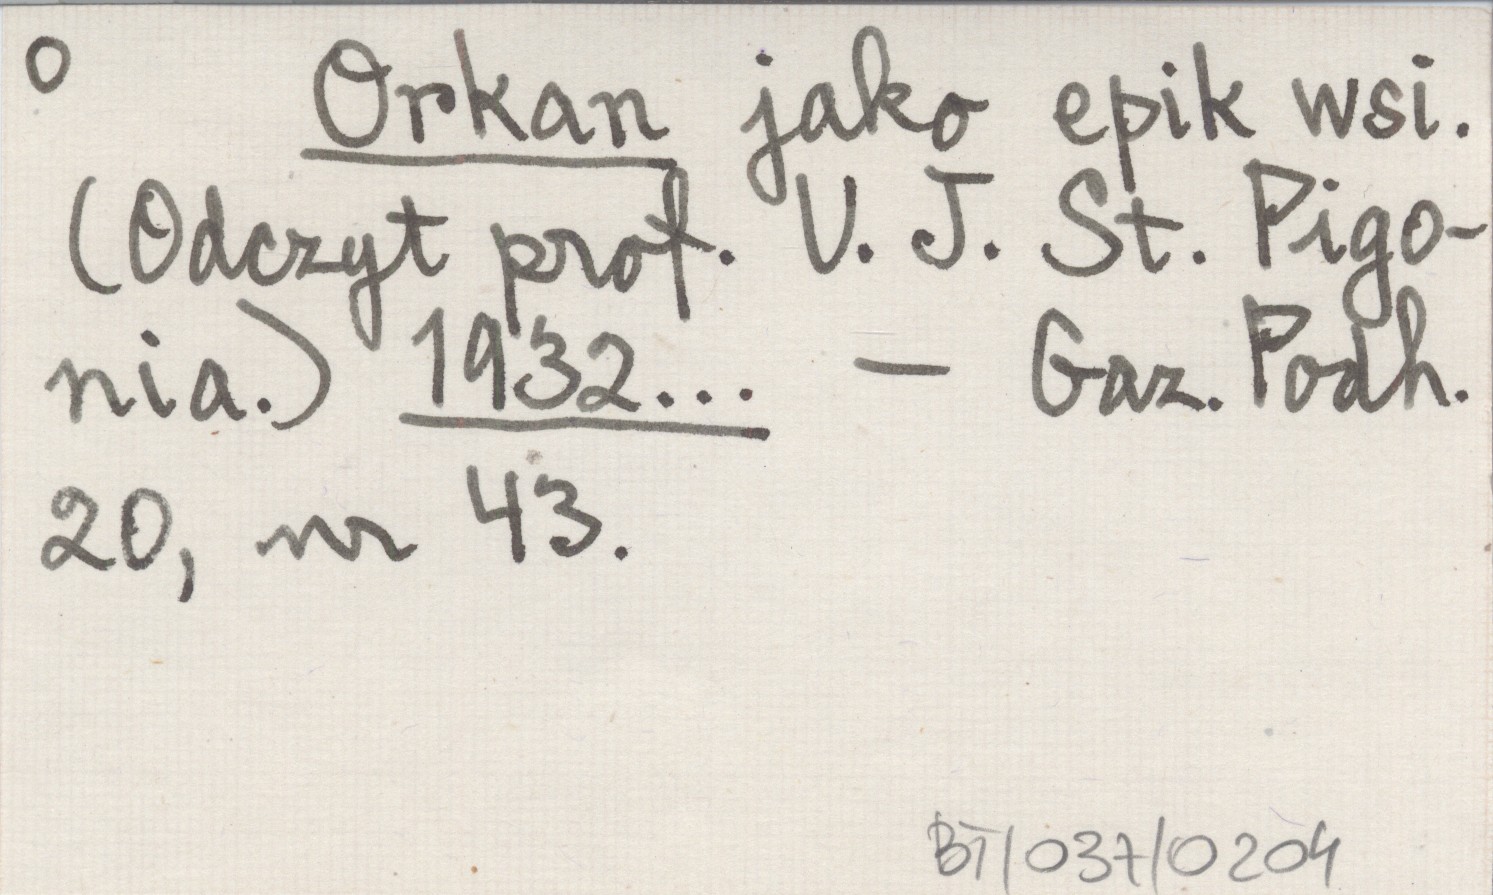 O Orkan jako epik wsi.
(Odczyt prof. U. J. St. Pigo-
nia.) 1932... – Gaz. Podh.
20, nr 43.
BT/037/0204